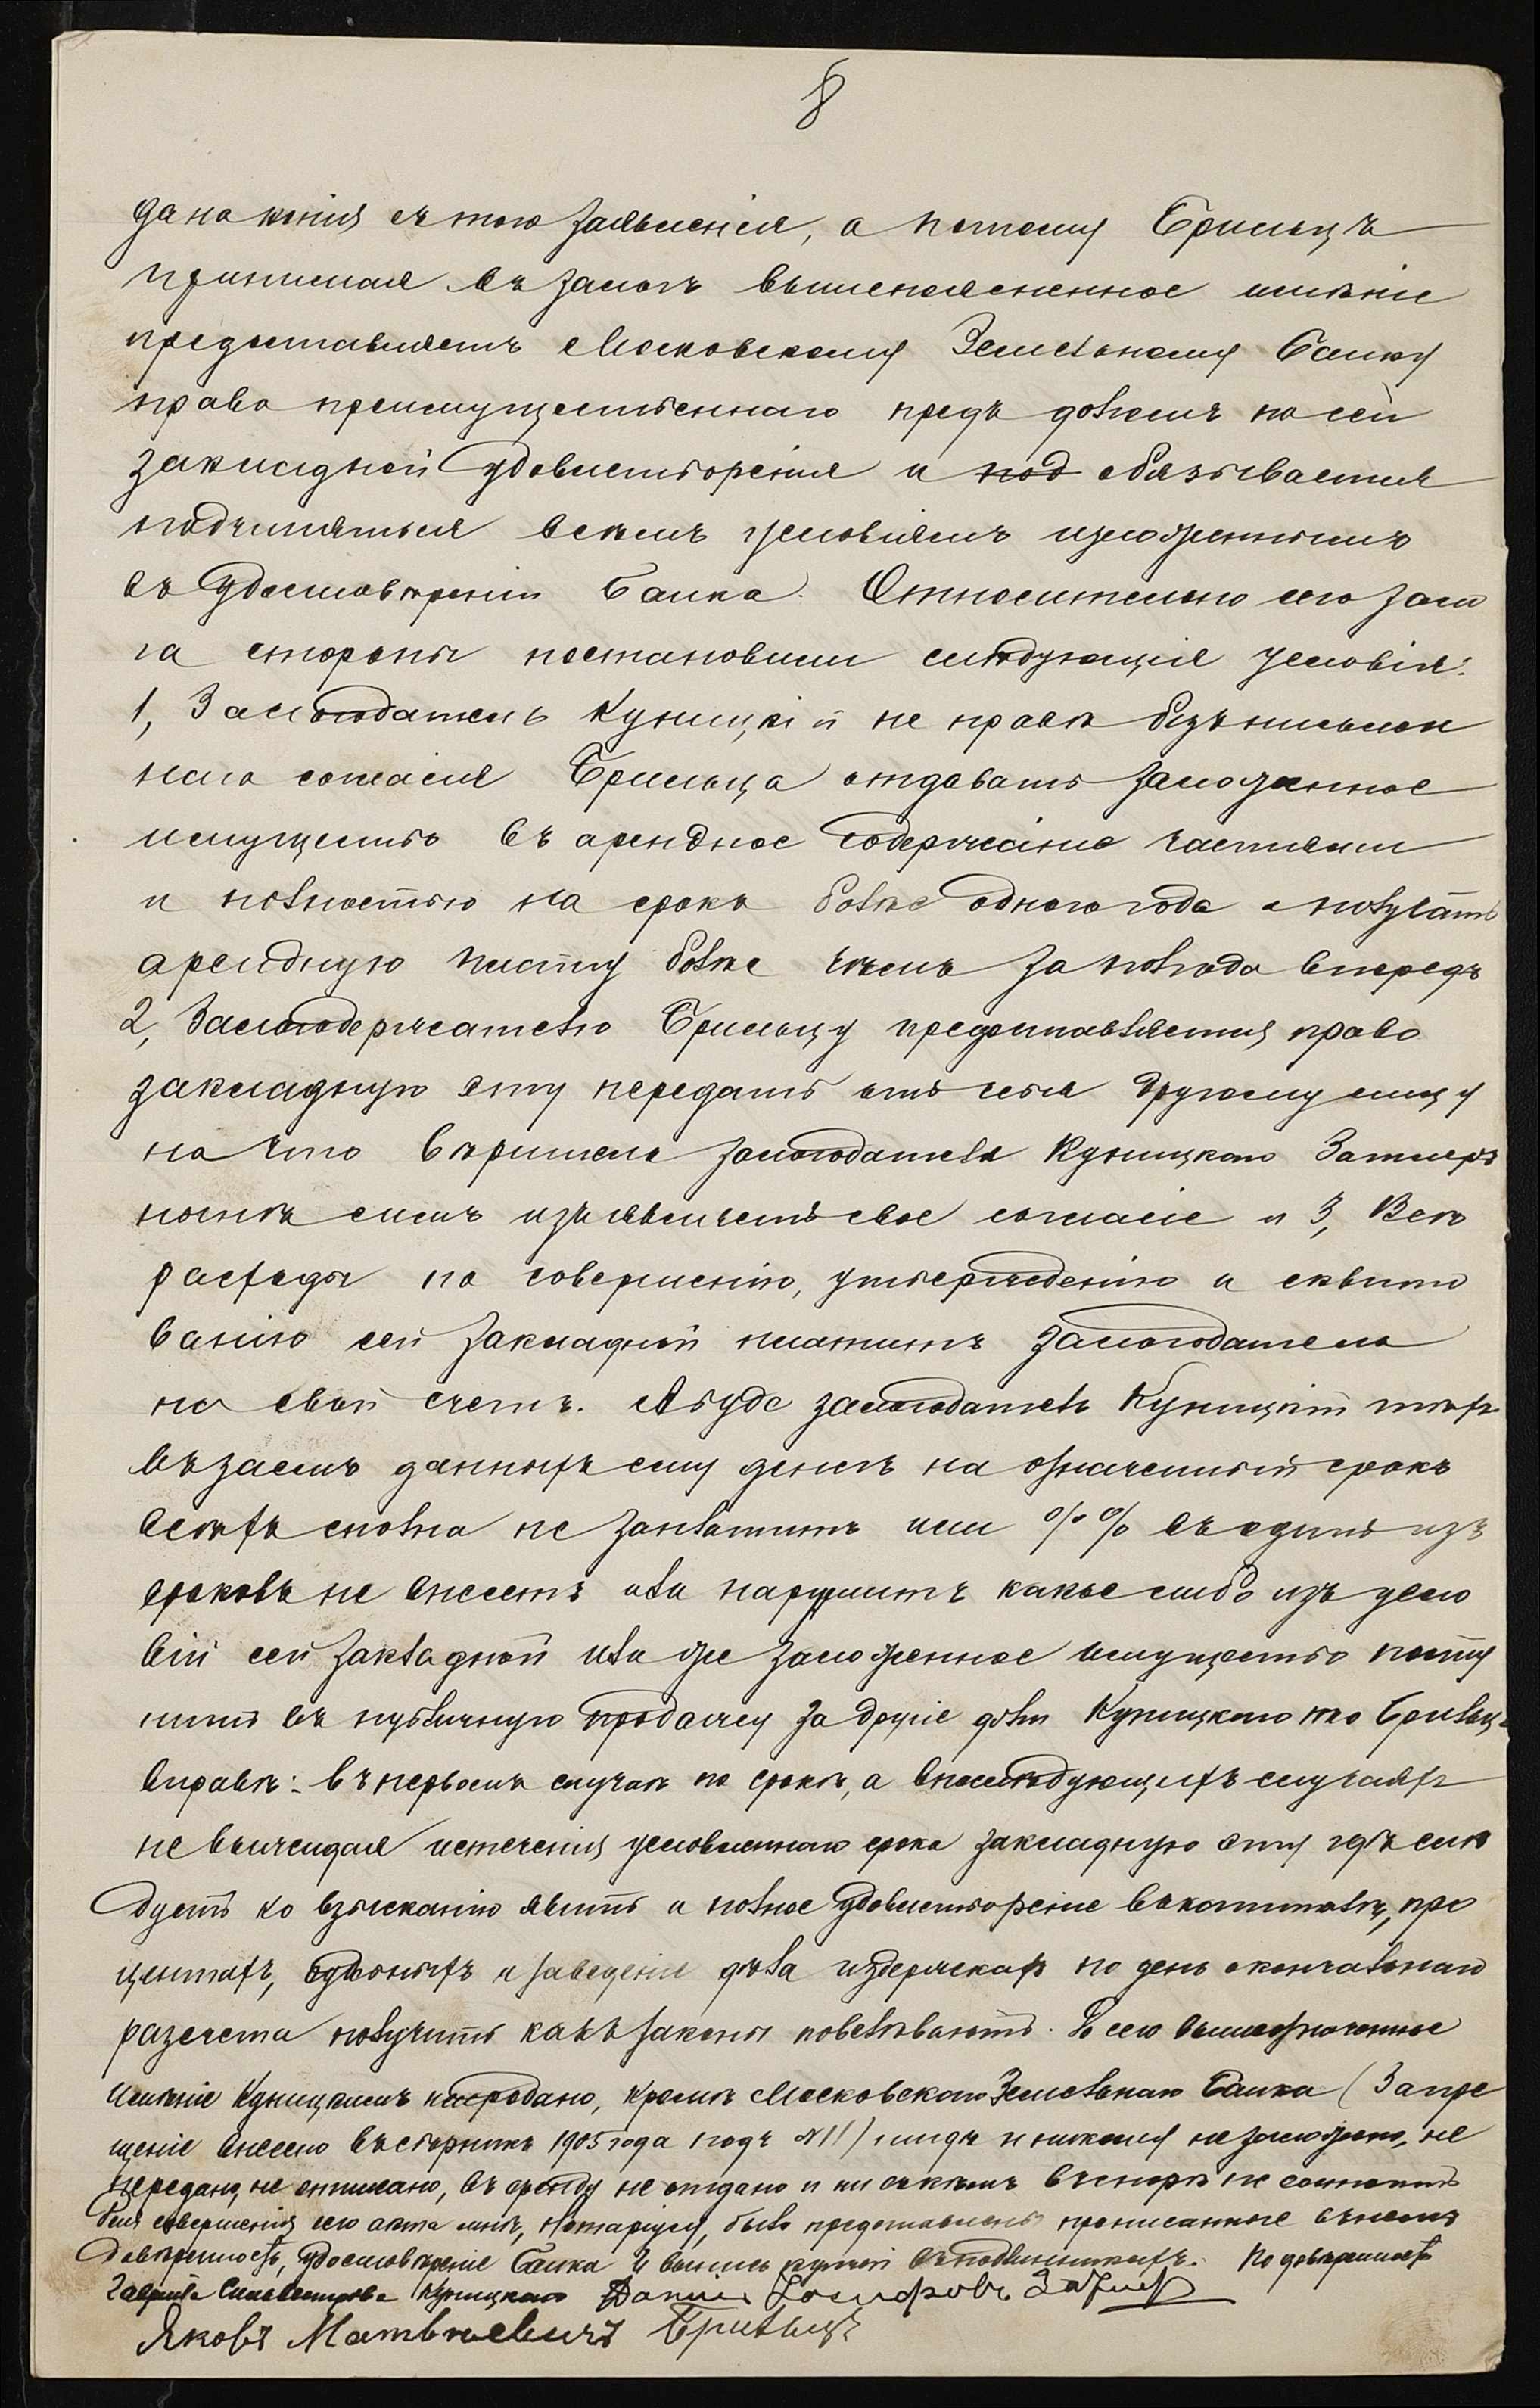 8
дана копія съ того заявленія, а потому Брильцъ
принимая въ залогъ вышепоясненное имѣніе
предоставляетъ Московскому Земельному Банку
право преимущественнаго предъ долгомъ по сей
закладной удовлетворенія и под обязывается
подчиняться всѣмъ условіямъ изложеннымъ
въ удостовѣреніи Банка. Относительно сего зало
га стороны постановили слѣдующія условія:
1, Залогодатель Куницкій не правѣ безъ письмен
наго согласія Брильца отдавать заложенное
имущество въ арендное содержаніе частями
и полностью на срокъ болѣе одного года и получать
арендную плату болѣе чѣмъ за полгода впередъ
2, Залогодержателю Брильцу предоставляется право
закладную эту передать отъ себя другому лицу
на что вѣритель залогодателя Куницкаго
симъ изъявляетъ свое согласіе и 3, Всѣ
расходы по совершенію, утвержденію и сквито
ванію сей закладной платитъ залогодатель
на свой счетъ. А буде залогодатель Куницкій тѣхъ
въ заемъ данныхъ ему денегъ на означенный срокъ
всѣхъ сполна не заплатитъ или %% въ одинъ изъ
сроковъ не внесетъ или нарушитъ какое либо изъ усло
вій сей закладной или же заложенное имущество посту
питъ въ публичную продажу за другіе долги Куницкаго то Брильцъ
вправѣ: въ первомъ случаѣ по срокѣ, а въ послѣдующихъ случаяхъ
не выжидая истеченія условленнаго срока закладную эту гдѣ слѣ
дуетъ ко взысканію явить и полное удовлетвореніе въ капиталѣ, про
центахъ, судебныхъ и заведенія дѣла издержкахъ по день окончательнаго
разсчета получить какъ законы повелѣваютъ. До сего вышеозначенное
имѣніе Куницкимъ не продано, кромѣ Московскаго Земельнаго Банка (Запре
щеніе внесено въ сборникъ 1905 года подъ № 11) нигдѣ и никому не заложено, не
передано, не описано, въ аренду не отдано и ни съ кѣмъ въ спорѣ не состоитъ
Для совершенія сего акта мнѣ, Нотаріусу, были представлены прописанные въ немъ
довѣренность, удостовѣреніе Банка и выпись купчей въ подлинникахъ. По довѣренности
Гавріила Сильвестрова Куницкаго Даніилъ Іосифовъ
Яковъ Матвѣевичъ Брильцъ